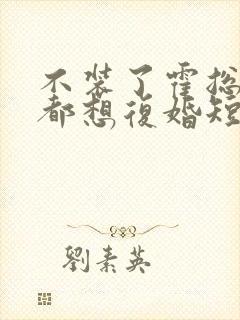 不装了霍总
都想復婚短
劉素英